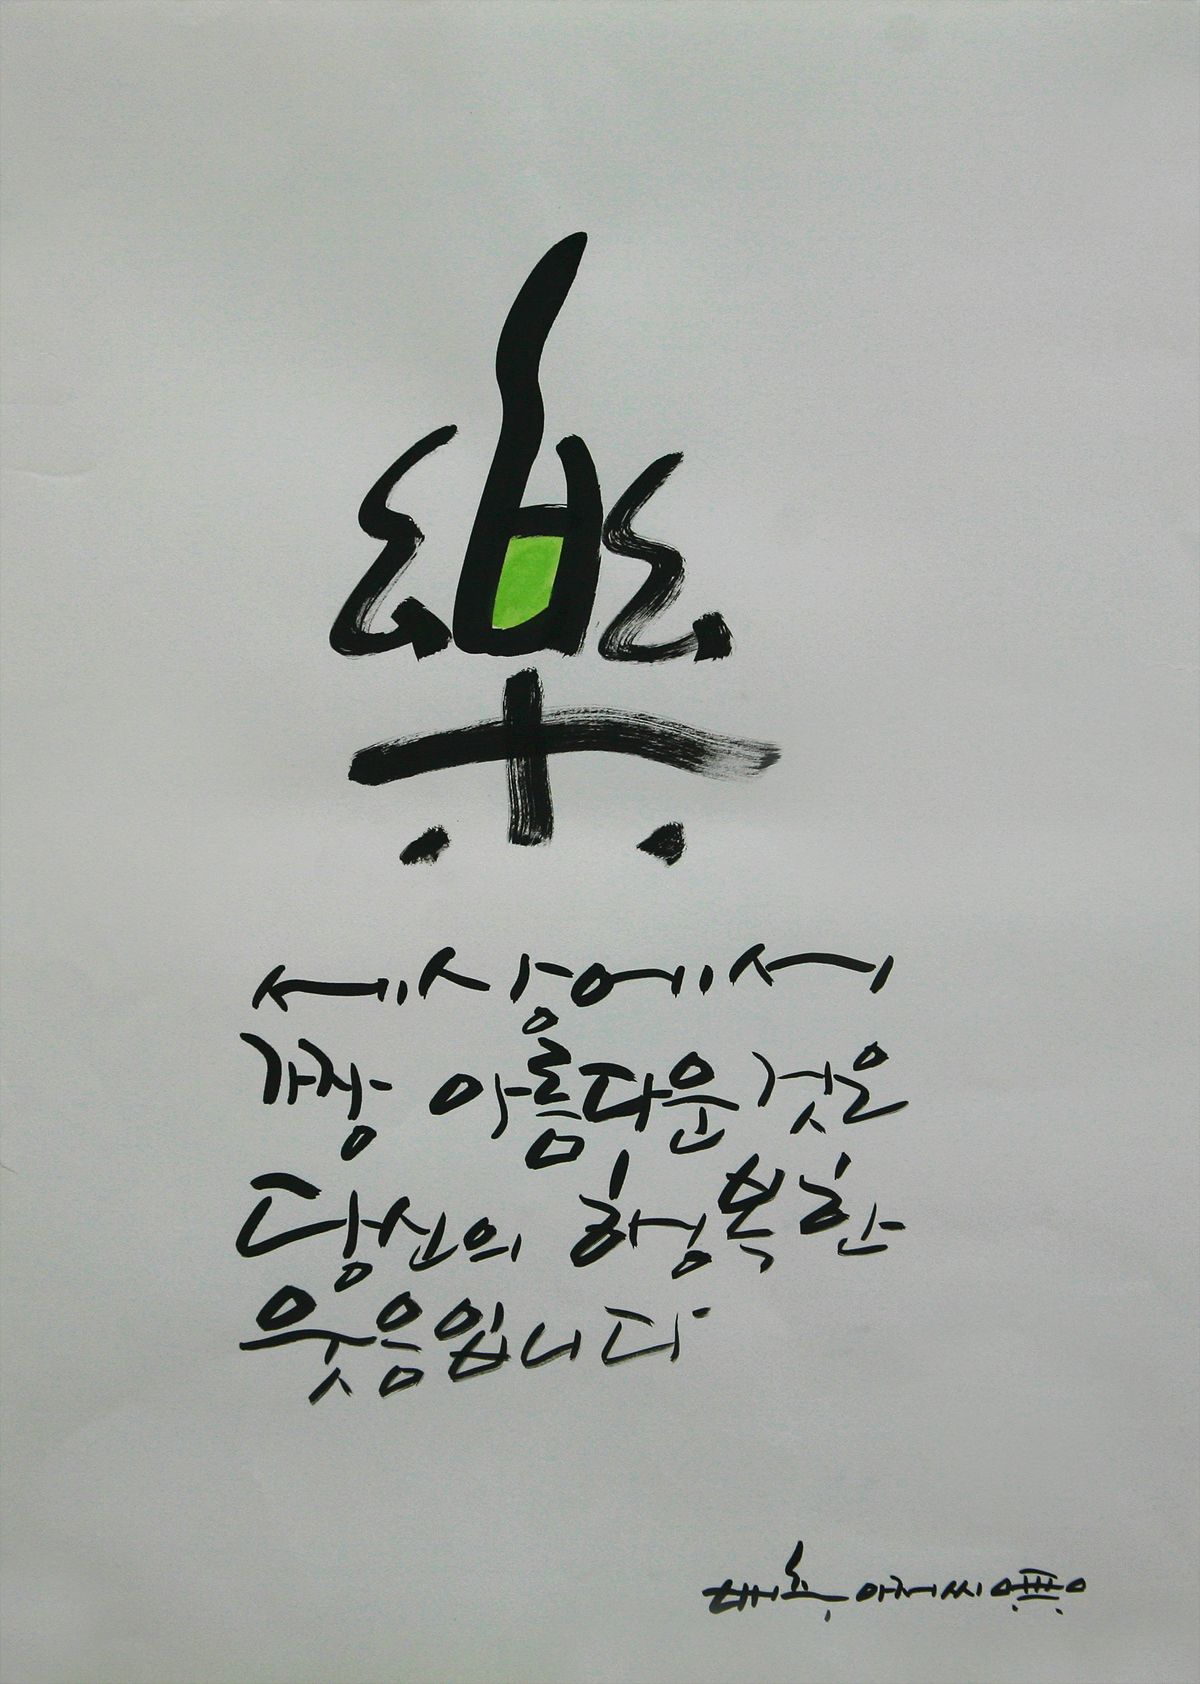 樂
세상에서
가장 아름다운 것은
당신의 행복한
웃음입니다
배추 아저씨